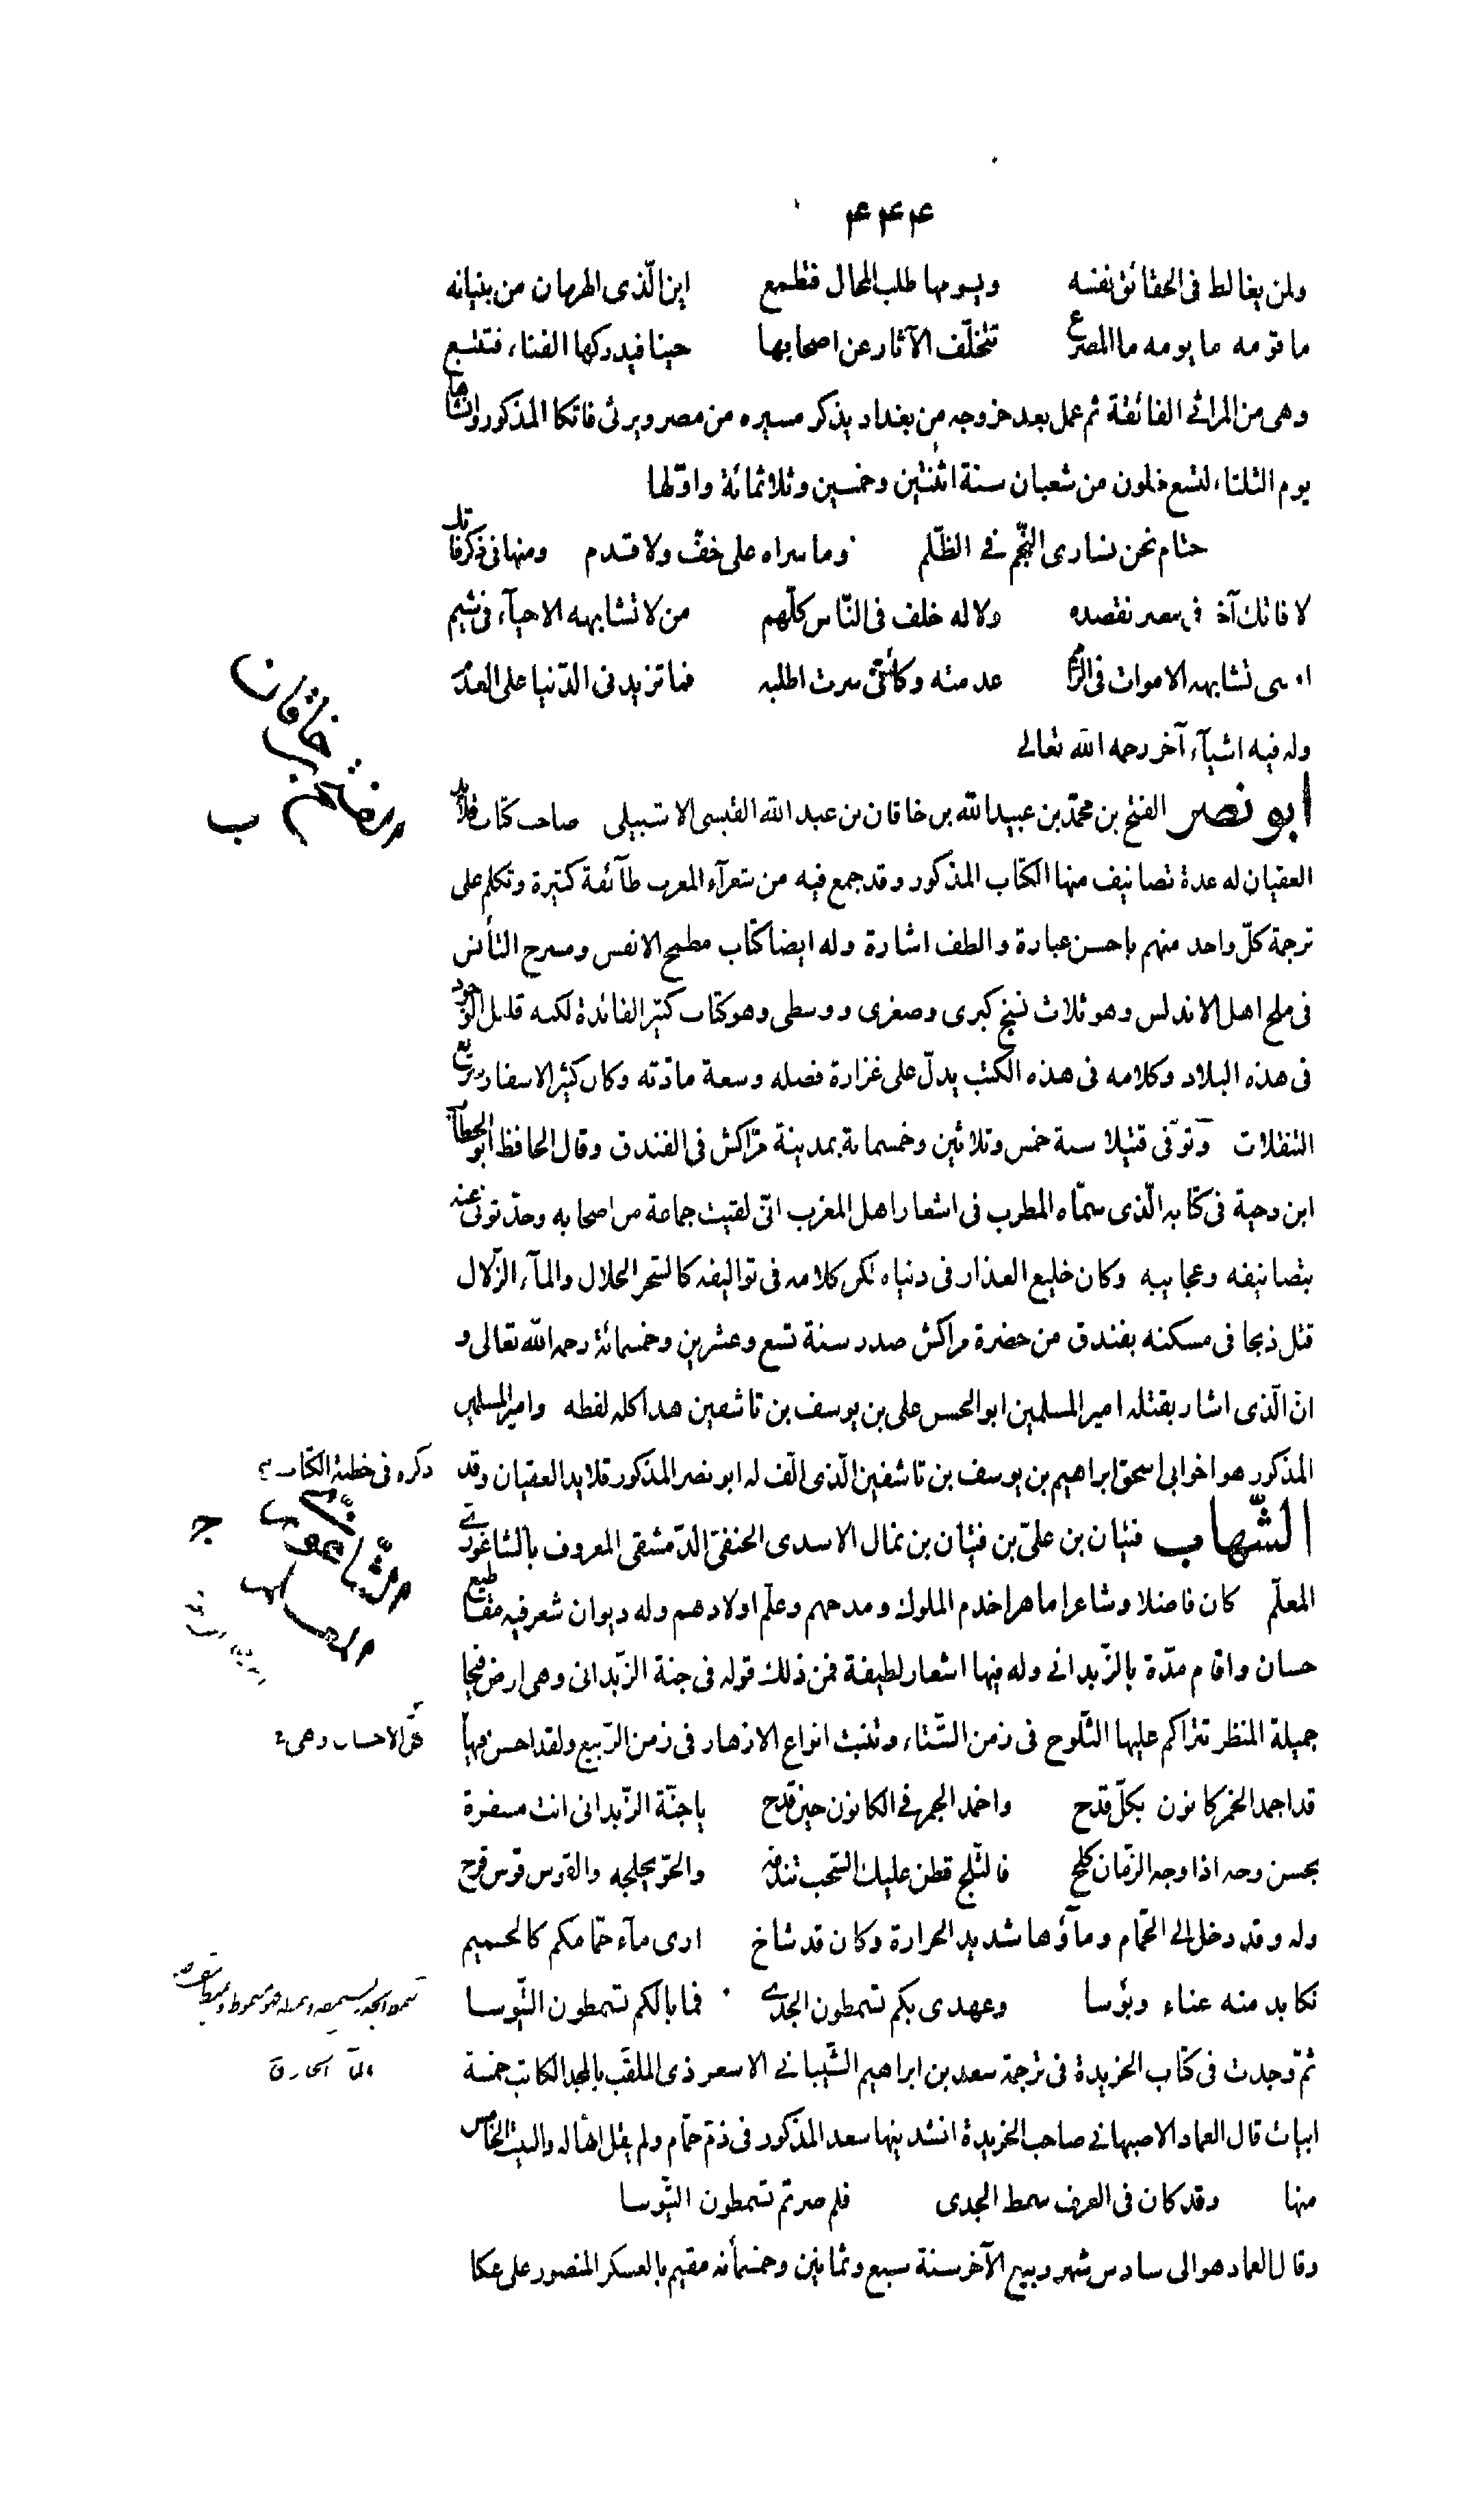 ۴۴۴
ولمن يغالط فى الحقائق نفسه ويسومها طلب المحال فتطمع اين الّذى الهرمان من بنيانه
ما قومه ما يومه ما المصرع تتخلّف الآثار عن اصحابها حينا فيدركها الفناء فتتبع
وهى من المراثى الفائقة ثم عمل بعد خروجه من بغداد يذكر مسيره من مصر ويرثى فاتكا المذكور وانشاها
يوم الثلثاء لتسع خلون من شعبان سنة اثنتين وخمسين وثلاثمائة واوّلها
حتام نحن نسارى النجّم فى الظّلم وما سراه على خفّ ولا قدم ومنها فى ذكر فاتك
لا فاتك آخر فى مصر نقصده ولا له خلف فى النّاس كلّهم من لا تشابهه الاحيآء فى شيم
امسى تشابهه الاموات فى الرّمم عدمته وكأنّنى سرت اطلبه فما تزيدنى الدّنيا على العدم
وله فيه اشيآء آخر رحمه الله تعالى
ابو نصر الفتح بن محمّد بن عبيد الله بن خاقان بن عبد الله القيسى الاشبيلى صاحب كتاب قلائد
العقيان له عدة تصانيف منها الكتاب المذكور وقد جمع فيه من شعرآء المغرب طآئفة كثيرة وتكلم على
ترجمة كلّ واحد منهم باحسن عبارة والطف اشارة وله ايضا كتاب مطمح الانفس ومسرح التأنس
فى ملح اهل الاندلس وهو ثلاث نسخ كبرى وصغرى ووسطى وهو كتاب كثير الفائدة لكنه قليل الوجود
فى هذه البلاد وكلامه فى هذه الكتب يدلّ على غزارة فضله وسعة مادّته وكان كثير الاسفار سريع
التنقلات وتوفى قتيلا سنة خمس وثلاثين وخمسماية بمدينة مرّاكش فى الفندق وقال الحافظ ابو الخطاب
ابن دحية فى كتابه الّذى سمّاه المطرب فى اشعار اهل المغرب انّى لقيت جماعة من اصحابه وحدّثونى عنه
بتصانيفه وعجايبه وكان خليع العذار فى دنياه لكن كلامه فى تواليفه كالسّحر الحلال والمآء الزّلال
قتل ذبحا فى مسكنه بفندق من حضرة مراكش صدر سنة تسع وعشرين وخمسمائة رحمه الله تعالى و
انّ الّذى اشار بقتله امير المسلمين ابو الحسن على بن يوسف بن تاشفين هذا كله لفظه وامير المسلمين
المذكور هو اخو ابى اسحق ابراهيم بن يوسف بن تاشفين الّذى الّف له ابو نصر المذكور قلايد العقيان وقد
ذكره فى خطبة الكتاب
الشّهاب فتيان بن علىّ بن فتيان بن ثمال الاسدى الحنفى الدّمشقى المعروف بالشاغورى
المعلّم كان فاضلا وشاعرا ماهرا خدم الملوك ومدحهم وعلّم اولادهم وله ديوان شعر فيه مقاطيع
حسان واقام مدّة بالزّبدانى وله فيها اشعار لطيفة فمن ذلك قوله فى جنة الزّبدانى وهى ارض فيحا
جميلة المنظر تتراكم عليها الثّلوج فى زمن الشّتاء وتنبت انواع الازهار فى زمن الرّبيع ولقد احسن فيها
قد اجمد الخمر كانون بكلّ قدح واخمد الجمر فى الكانون حين قدح يا جنّة الزّبدانى انت مسفرة
بحسن وجه اذا وجه الزّمان كلح فالثّلج قطن عليك السّحب تندفه والجوّ يحلجه والقوس قوس قزح
وله وقد دخل الى الحمّام ومآؤها شديد الحرارة وكان قد شاخ ارى مآء حمّامكم كالحميم
نكابد منه عناء وبؤسا وعهدى بكم تسمطون الجدى فما بالكم تسمطون التّيوسا
ثمّ وجدت فى كتاب الخريدة فى ترجمة سعد بن ابراهيم الشّيبانى الاسعردى الملقّب بالمجد الكاتب خمسة
ابيات قال العماد الاصبهانى صاحب الخريدة انشدنيها سعد المذكور فى ذمّ حمّام ولم يقل انّها له والبيت الخامس
منها وقد كان فى العرف سمط الجدى فلم صرتم تسمطون التّيوسا
وقال العماد هو الى سادس شهر ربيع الآخر سنة سبع وثمانين وخمسمأنه مقيم بالعسكر المنصور على عكا